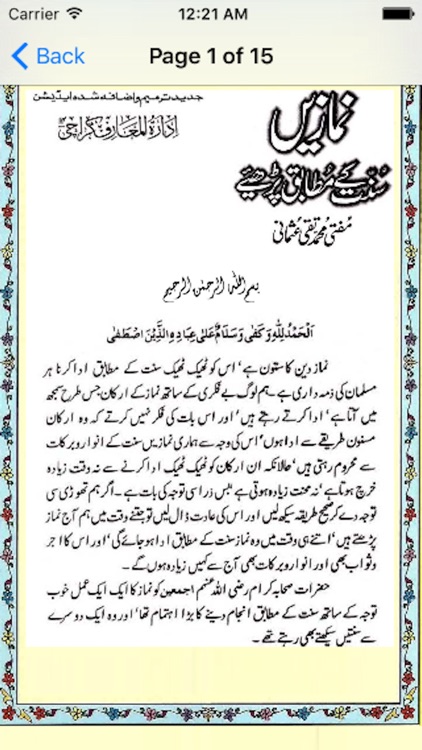 Carrier 12:21 AM
Back Page 1 of 15
جدید ترمیم و اضافہ شدہ ایڈیشن
ادارۃ المعارف کراچی
نمازیں
سنت کے مطابق پڑھیئے
مفتی محمد تقی عثمانی
بسم اللہ الرحمٰن الرحیم
اَلْحَمْدُ لِلّٰہِ وَکَفٰی وَسَلَامٌ عَلٰی عِبَادِہِ الَّذِیْنَ اصْطَفٰی
نماز دین کا ستون ہے' اس کو ٹھیک ٹھیک سنت کے مطابق ادا کرنا ہر
مسلمان کی ذمہ داری ہے۔ ہم لوگ بے فکری کے ساتھ نماز کے ارکان جس طرح سمجھ
میں آتا ہے' ادا کرتے رہتے ہیں' اور اس بات کی فکر نہیں کرتے کہ وہ ارکان
مسنون طریقے سے ادا ہوں' اس کی وجہ سے ہماری نمازیں سنت کے انوار و برکات
سے محروم رہتی ہیں' حالانکہ ان ارکان کو ٹھیک ٹھیک ادا کرنے سے نہ وقت زیادہ
خرچ ہوتا ہے' نہ محنت زیادہ ہوتی ہے' بس ذرا سی توجہ کی بات ہے۔ اگر ہم تھوڑی سی
توجہ دے کر صحیح طریقہ سیکھ لیں اور اس کی عادت ڈال لیں تو جتنے وقت میں ہم آج نماز
پڑھتے ہیں' اتنے ہی وقت میں وہ نماز سنت کے مطابق ادا ہو جائے گی' اور اس کا اجر
و ثواب بھی اور انوار و برکات بھی آج سے کہیں زیادہ ہوں گے۔
حضرات صحابہ کرام رضی اللہ عنہم اجمعین کو نماز کا ایک ایک عمل خوب
توجہ کے ساتھ سنت کے مطابق انجام دینے کا بڑا اہتمام تھا' اور وہ ایک دوسرے
سے سنتیں سیکھتے بھی رہتے تھے۔